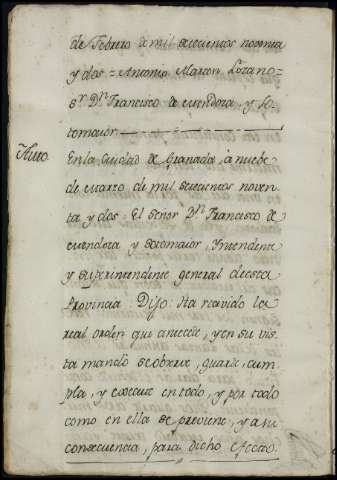 de Febrero de mil setecientos noventa
y dos = Antonio Marcon Lozano =
Sr. Dn. Francisco de mendoza, y So-
tomaior.
Auto
En la Ciudad de Granada, à nuebe
de marzo de mil setecientos noven-
ta y dos: El señor Dn. Francisco de
mendoza y sotomaior, Yntendente
y superintendente general de esta
Provincia Dijo: Ha recivido la
real orden que antecede, y en su vis-
ta mandò se observe, guarde, cum-
pla, y execute en todo, y por todo
como en ella se previene, y a su
consecuencia, para dicho efecto.